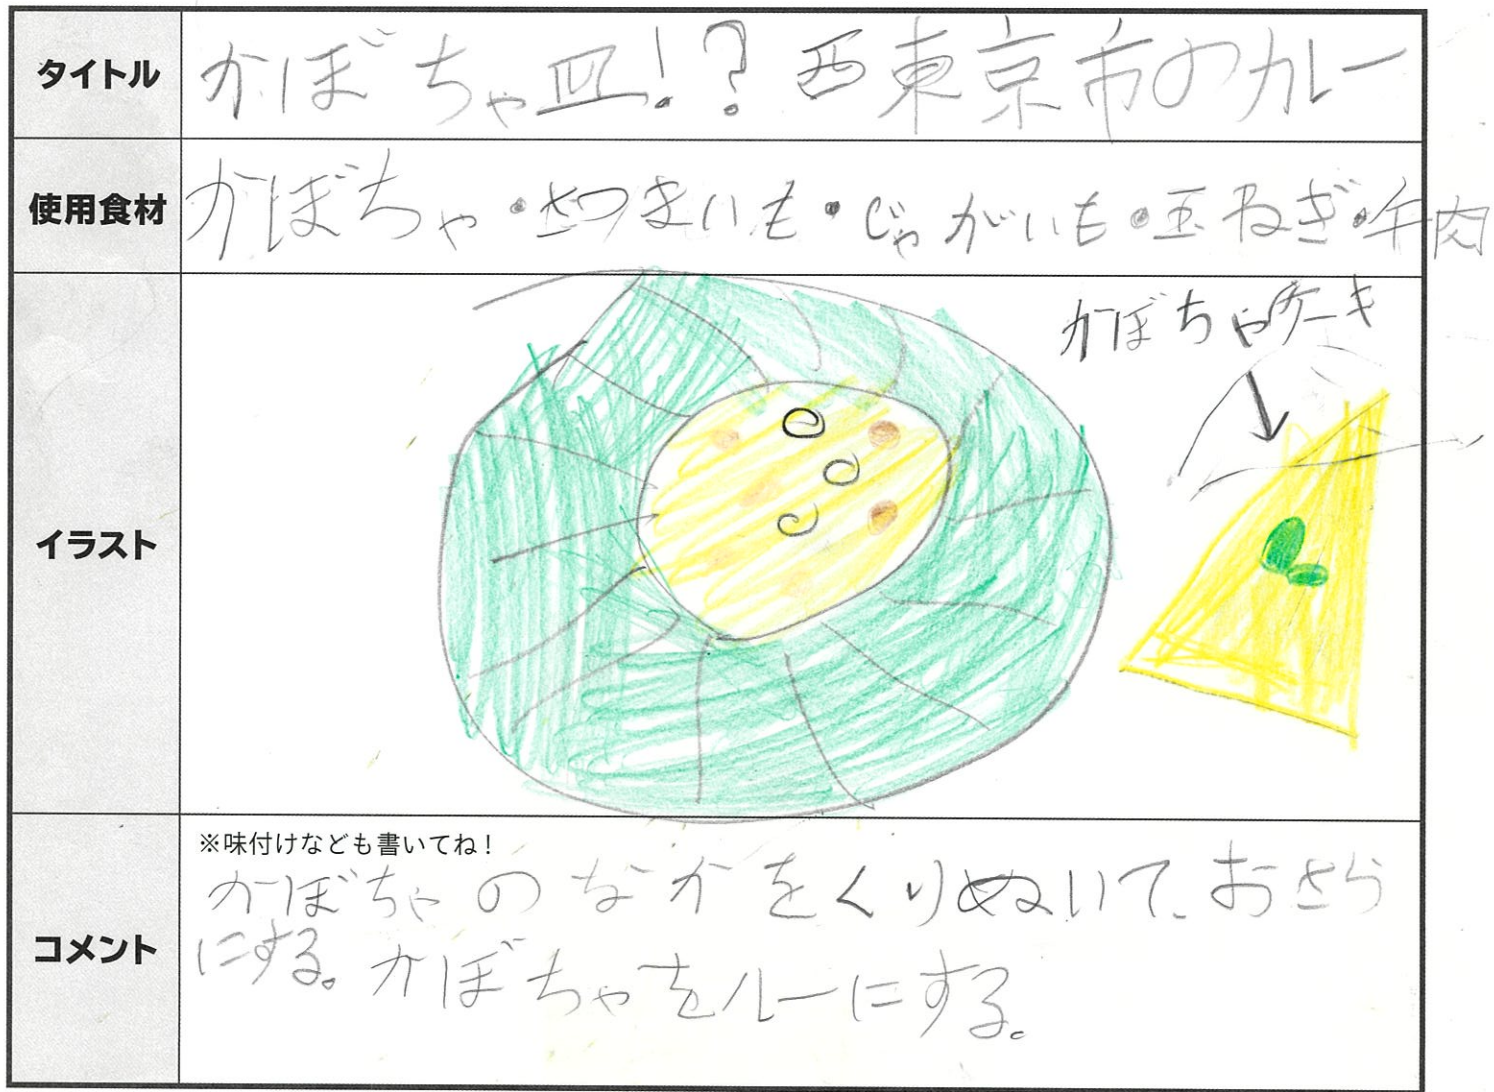 タイトル
かぼちゃ皿!? 西東京市のカレー
使用食材
かぼちゃ・さつまいも・じゃがいも・玉ねぎ・牛肉
イラスト
かぼちゃケーキ
コメント
※味付けなども書いてね!
かぼちゃのなかをくりぬいて、おさら
にする。かぼちゃをルーにする。